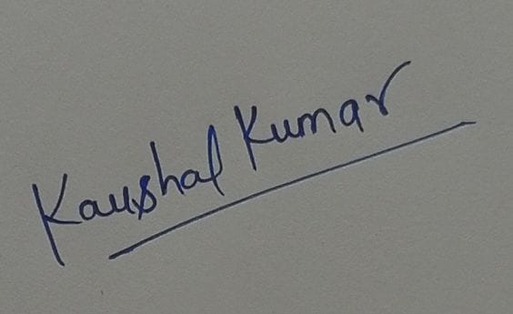 Kaushal Kumar